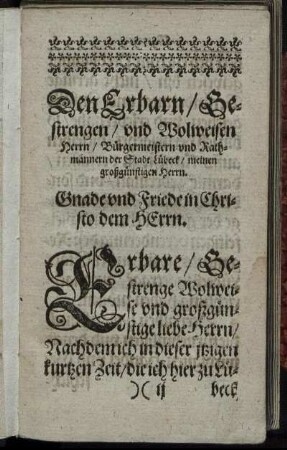 Den Erbarn / Ge-
strengen / vnd Wolweisen
Herrn / Bürgermeistern vnd Rath-
männern der Stadt Lübeck / meinen
großgünstigen Herrn.
Gnade vnd Friede in Chri-
sto dem HErrn.
Erbare / Ge-
strenge Wolwei-
se vnd großgün-
stige liebe Herrn /
Nachdem ich in dieser jtzigen
kurtzen Zeit / die ich hier zu Lü-
)( ij beck